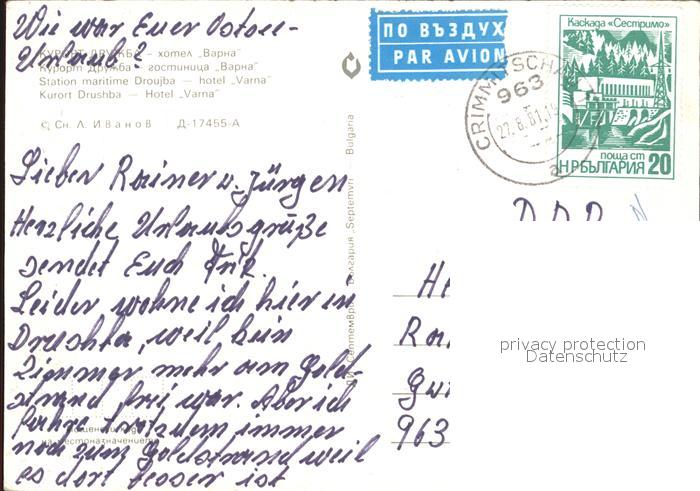 Wie war Euer Ostsee-
Urlaub?
КУРОРТ ДРУЖБА – хотел „Варна"
Курорт Дружба – гостиница „Варна"
Station maritime Droujba — hotel „Varna"
Kurort Drushba — Hotel „Varna"
© Сн. Л. Иванов Д-17455-А
Lieber Rainer u. Jürgen
Herzliche Urlaubsgrüße
sendet Euch
Leider wohne ich hier in
Drushba, weil kein
Zimmer mehr am Gold-
strand frei war. Aber ich
fahre trotzdem immer
noch zum Goldstrand weil
es dort besser ist
местоназначението
България „Septemvri" Bulgaria
ПО ВЪЗДУХ
PAR AVION
CRIMMITSCHA
963
27.8.81.
a
Каскада „Сестримо"
поща ст
НР БЪЛГАРИЯ 20
DDR
He
Rai
963
privacy protection
Datenschutz